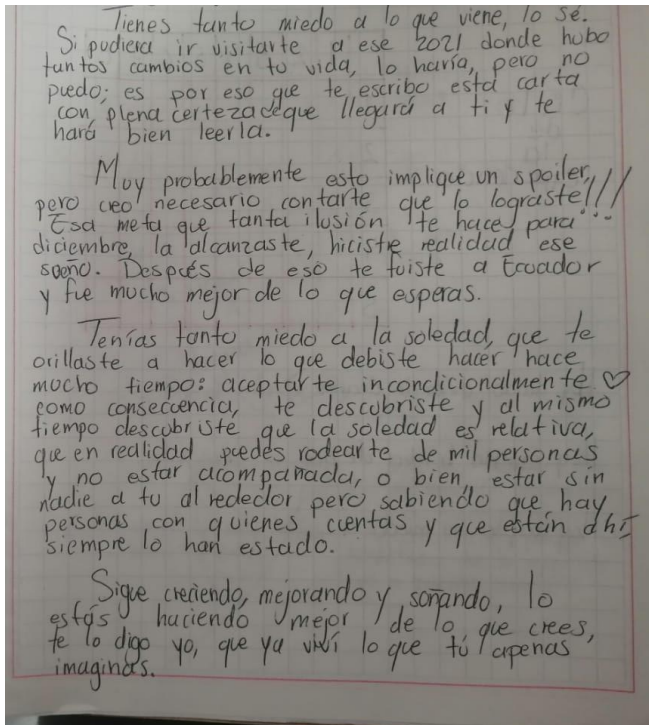 Tienes tanto miedo a lo que viene, lo sé.
Si pudiera ir visitarte a ese 2021 donde hubo
tantos cambios en tu vida, lo haría, pero no
puedo; es por eso que te escribo esta carta
con plena certeza de que llegará a ti y te
hará bien leerla.
Muy probablemente esto implique un spoiler,
pero creo necesario contarte que lo lograste!!!
Esa meta que tanta ilusión te hace para
diciembre, la alcanzaste, hiciste realidad ese
sueño. Después de eso te fuiste a Ecuador
y fue mucho mejor de lo que esperas.
Tenías tanto miedo a la soledad, que te
orillaste a hacer lo que debiste hacer hace
mucho tiempo: aceptarte incondicionalmente ♡
como consecuencia, te descubriste y al mismo
tiempo descubriste que la soledad es relativa,
que en realidad puedes rodearte de mil personas
y no estar acompañada, o bien, estar sin
nadie a tu al rededor pero sabiendo que hay
personas con quienes cuentas y que están ahí
siempre lo han estado.
Sigue creciendo, mejorando y soñando, lo
estás haciendo mejor de lo que crees,
te lo digo yo, que ya viví lo que tú apenas
imaginas.